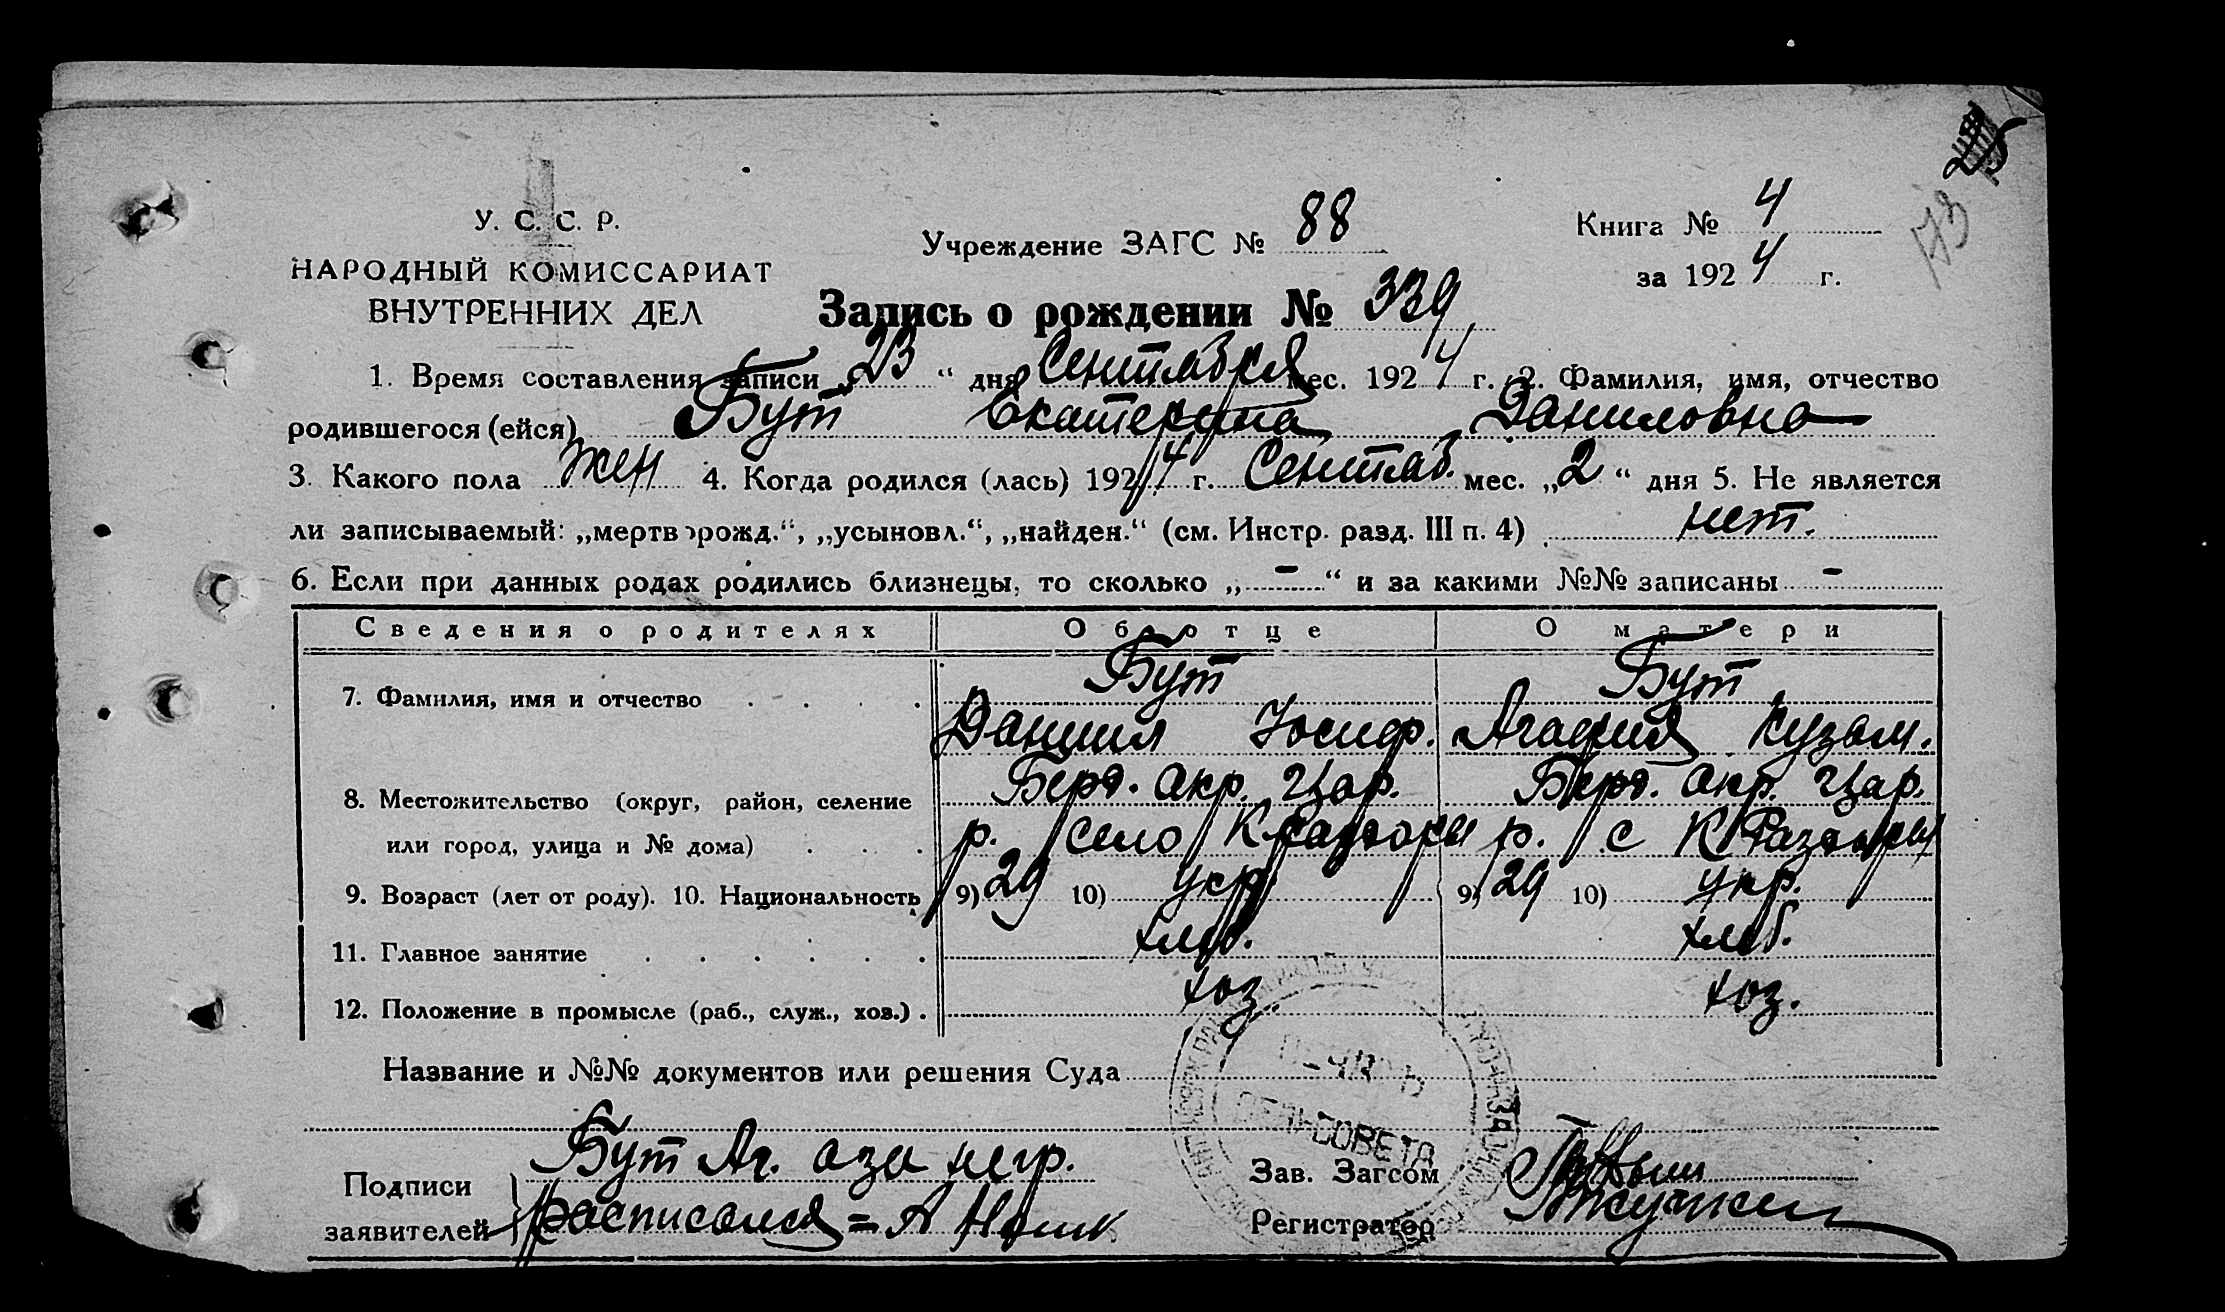 25
173
У. С. С. Р.
НАРОДНЫЙ КОМИССАРИАТ
ВНУТРЕННИХ ДЕЛ
Учреждение ЗАГС № 88
Книга № 4
за 1924 г.
Запись о рождении № 339
1. Время составления записи „23“ дня Сентября мес. 1924 г. 2. Фамилия, имя, отчество
родившегося (ейся) Бут Екатерина Даниловна
3. Какого пола жен 4. Когда родился (лась) 1924 г. Сентяб. мес. „2“ дня 5. Не является
ли записываемый: „мертворожд.“, „усыновл.“, „найден.“ (см. Инстр. разд. III п. 4) нет.
6. Если при данных родах родились близнецы, то сколько „-“ и за какими №№ записаны -
Сведения о родителях Об отце О матери
7. Фамилия, имя и отчество Бут Бут
Даниил Иосиф. Агафия Кузьм.
8. Местожительство (округ, район, селение Берд. окр. Цар. Берд. окр. Цар.
или город, улица и № дома) р. село К Раздоры р. с К Раздоры
9. Возраст (лет от роду). 10. Национальность 9) 29 10) укр. 9) 29 10) укр.
11. Главное занятие хлеб. хлеб.
12. Положение в промысле (раб., служ., хоз.) хоз. хоз.
Название и №№ документов или решения Суда
ПЕЧАТЬ
СЕЛЬСОВЕТА
Подписи
заявителей
Бут Аг. а за негр.
расписался = А
Зав. Загсом
Регистратор